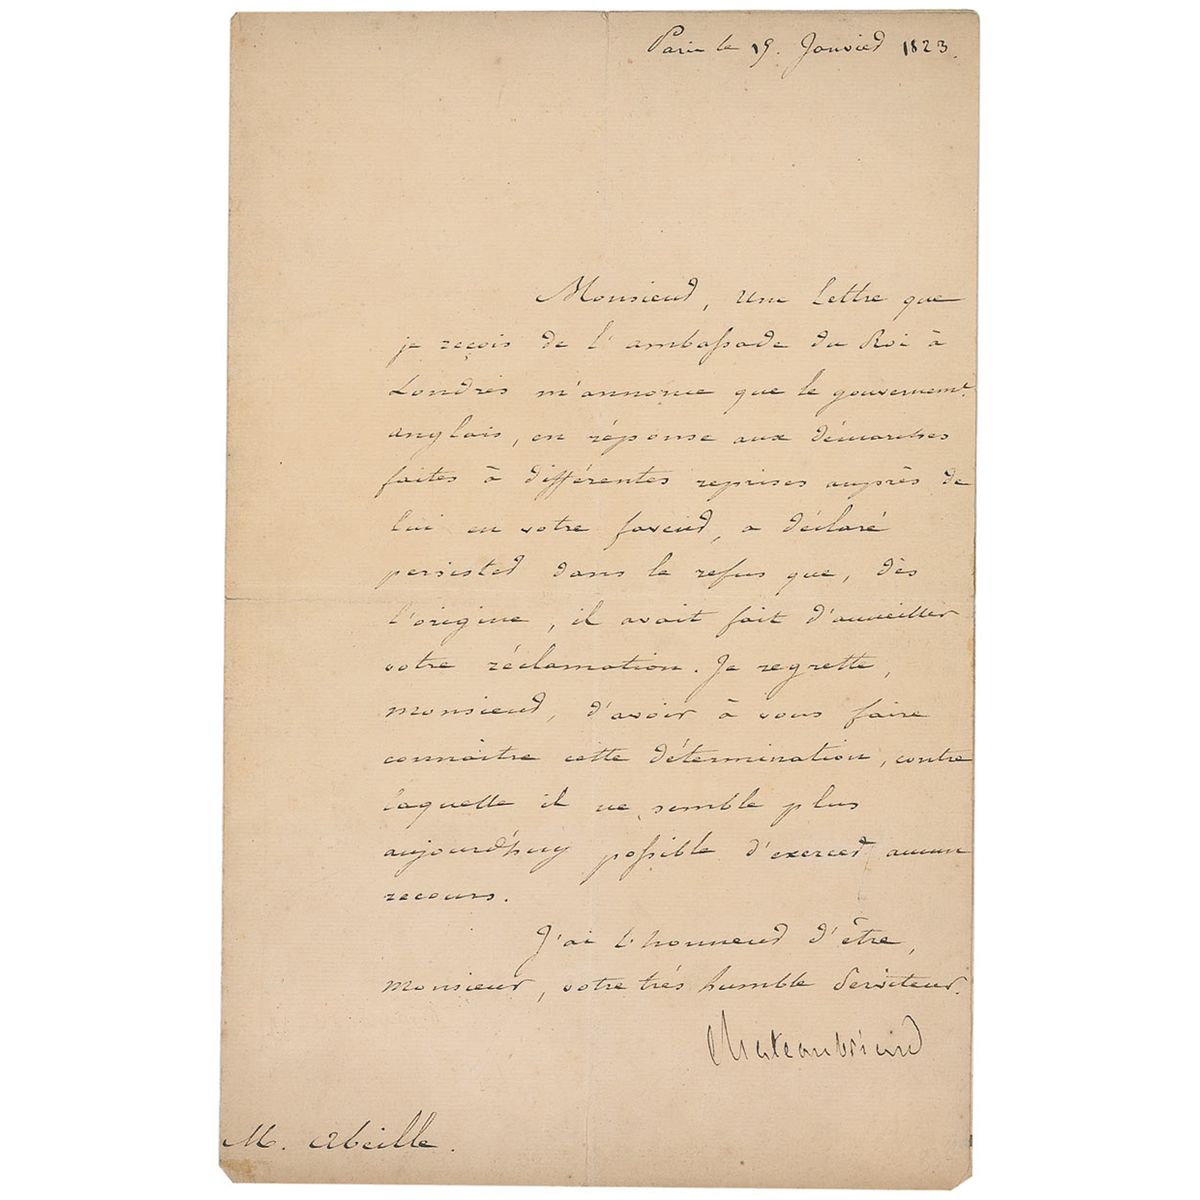 Paris le 15. Janvier 1823.
Monsieur, une lettre que
je reçois de l'ambassade du Roi à
Londres m'annonce que le gouvernemt.
anglais, en réponse aux démarches
faites à différentes reprises auprès de
lui en votre faveur, a déclaré
persister dans le refus que, dès
l'origine, il avait fait d'accueillir
votre réclamation. Je regrette,
monsieur, d'avoir à vous faire
connaître cette détermination, contre
laquelle il ne semble plus
aujourd'huy possible d'exercer aucun
recours.
J'ai l'honneur d'être,
monsieur, votre très humble Serviteur.
Chateaubriand
M. Abeille.